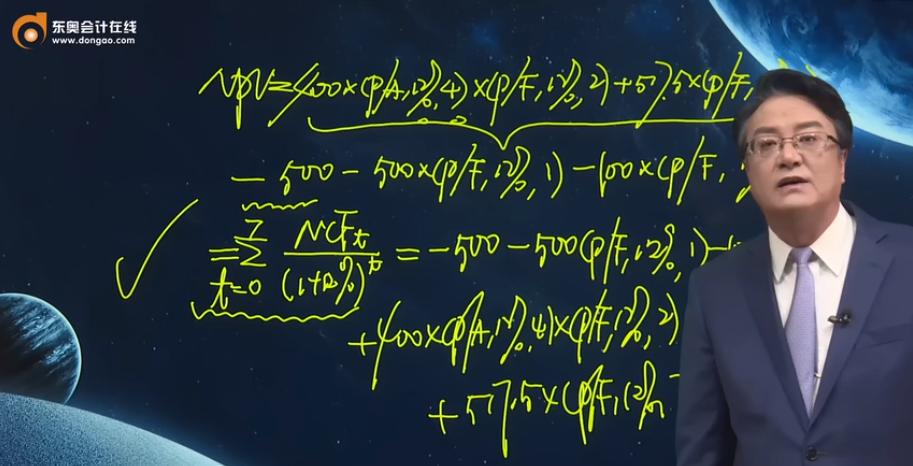 东奥会计在线
www.dongao.com
NPV=400×(P/A,12%,4)×(P/F,12%,2)+517.5×(P/F,
-500-500×(P/F,12%,1)-100×(P/F,
=∑ 7 t=0 NCFt/(1+12%)^t =-500-500(P/F,12%,1)-1
+400×(P/A,12%,4)×(P/F,12%,2)
+517.5×(P/F,12%,